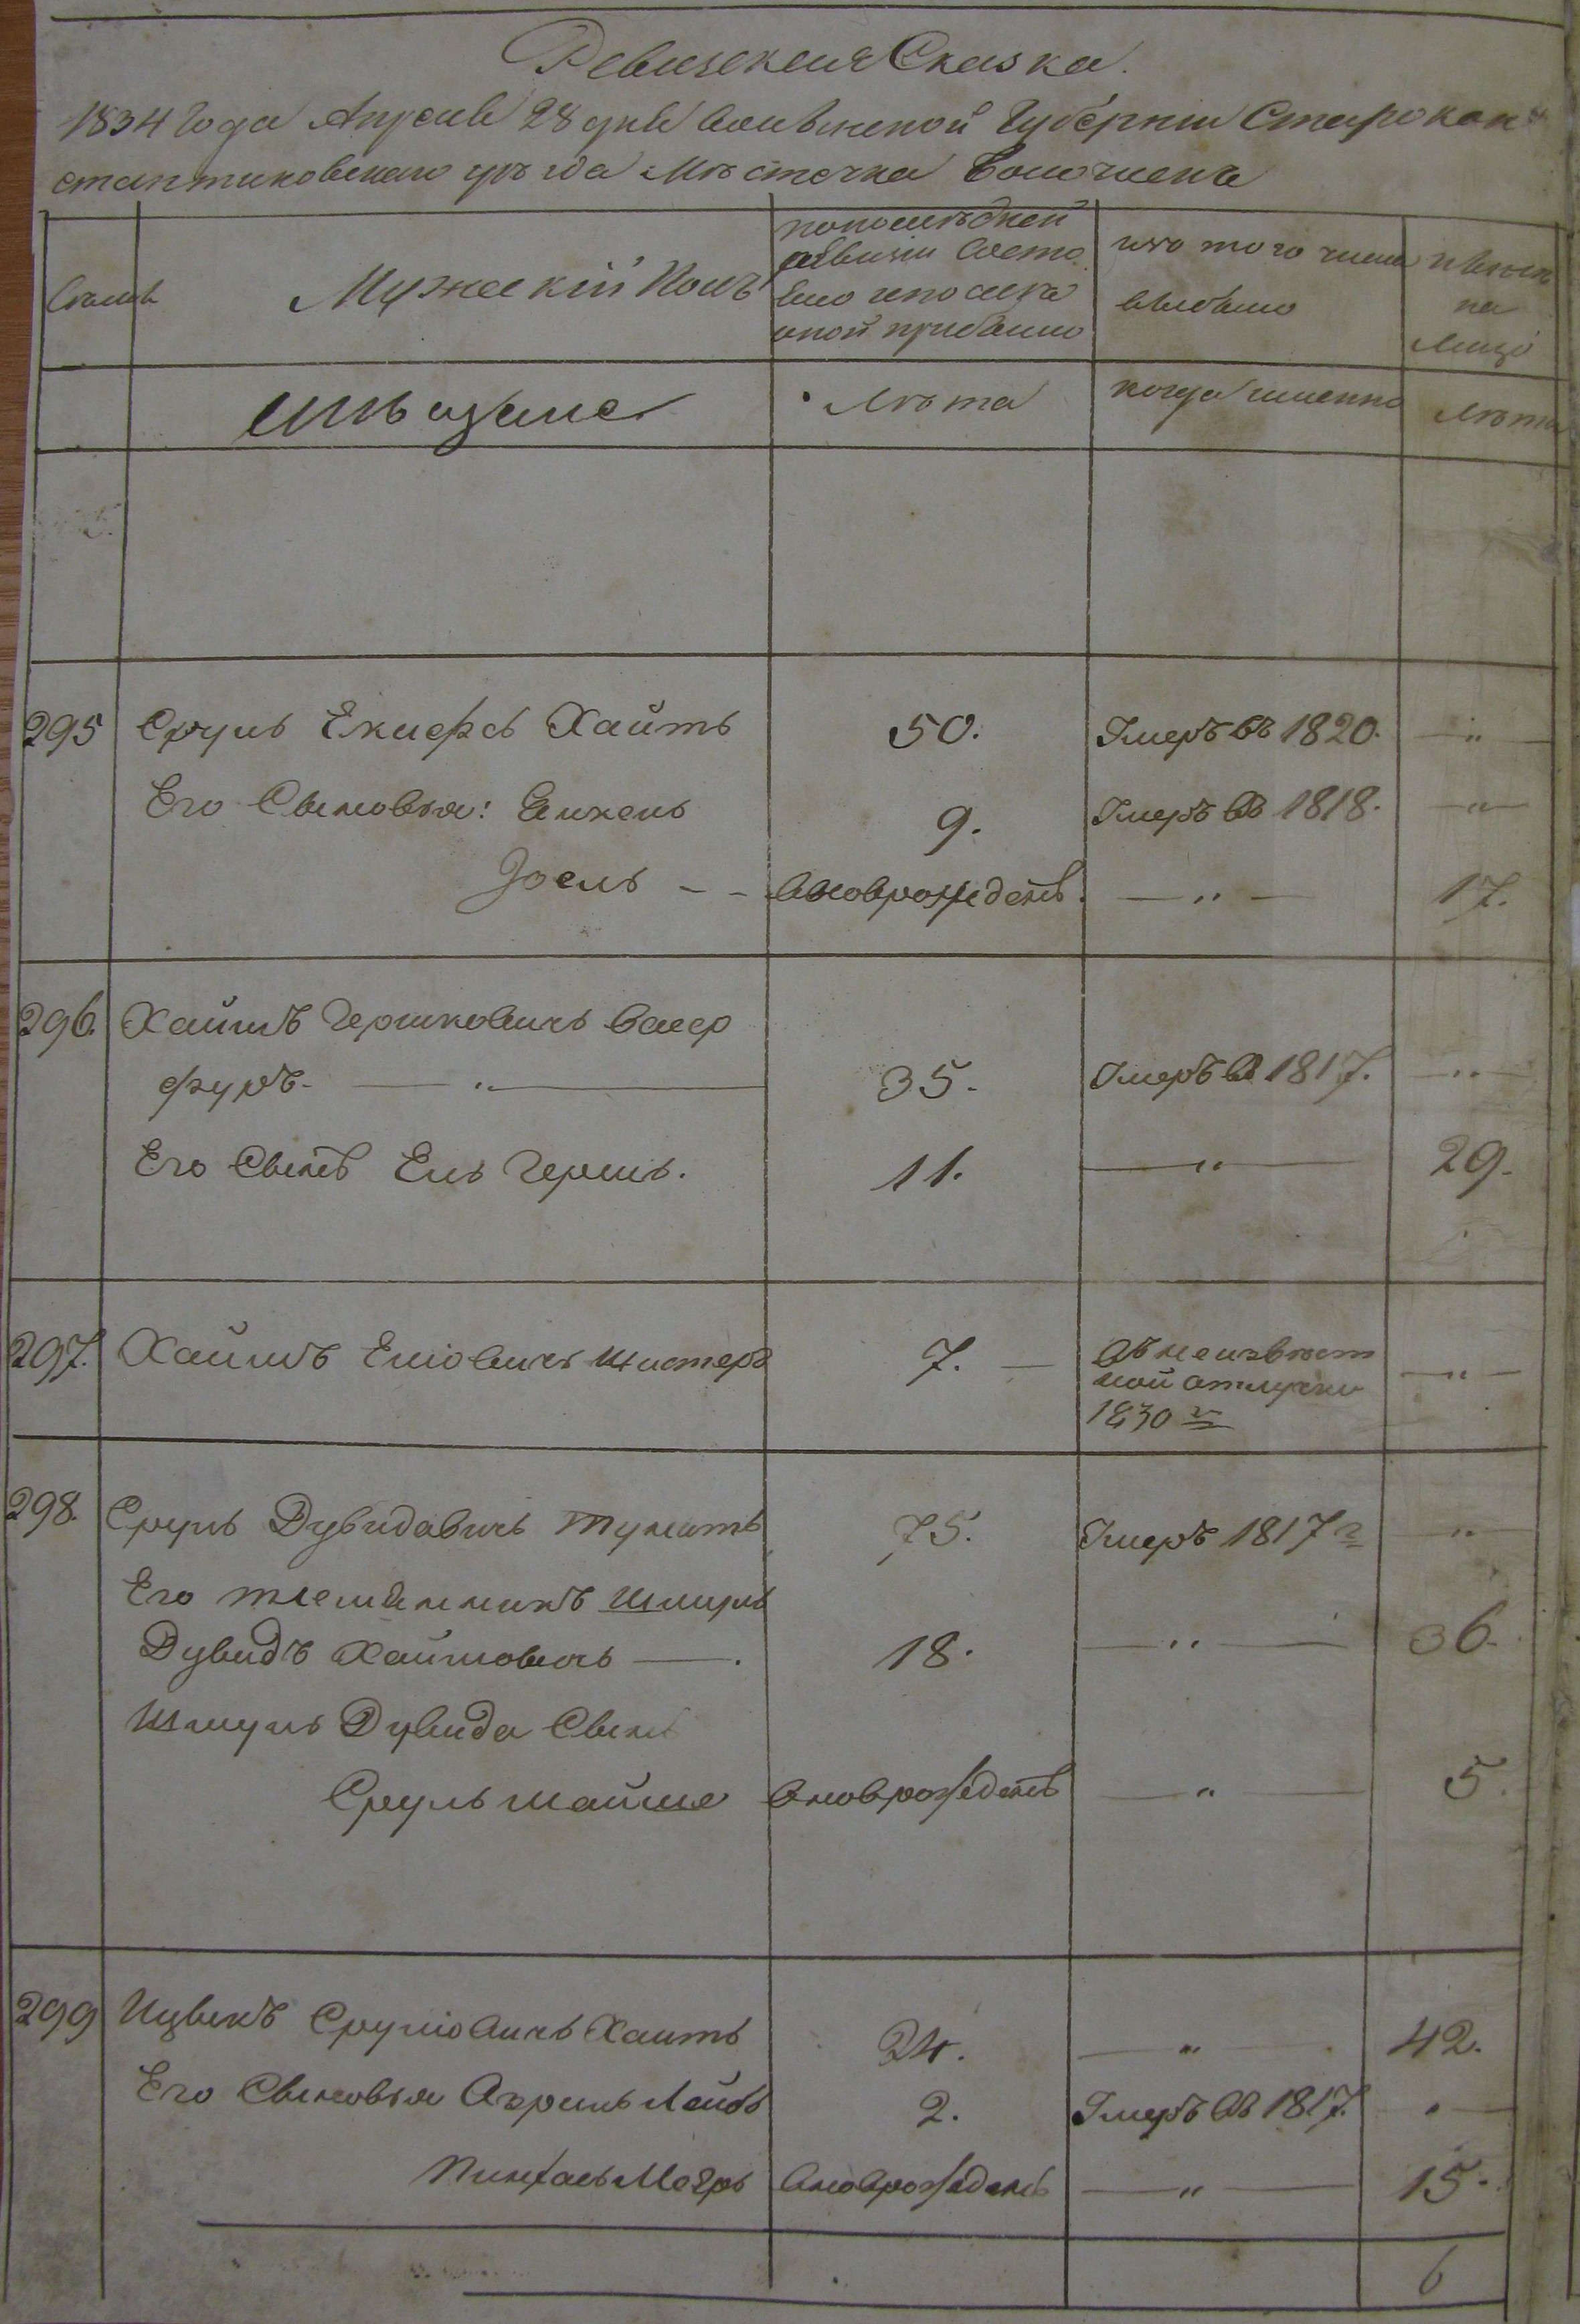 Ревизская Сказка.
1834 Года Апреля 28 дня Волынской Губернiи Старокон
стантиновскаго уѣзда Мѣстечка Волочиска
Семьи
Мужескiй Полъ
по последней
ревизiи Состо
яло и после
оной прибыло
изъ того числа
выбыло
нынѣ
на
лицо
мѣщане
Лѣта
когда именно
Лѣта
295 Сруль Хаитъ 50. Умеръ въ 1820. — " —
Его Сыновья: 9. Умеръ въ 1818. — " —
Iосль - - вновърожденъ. — " — 17.
296. Хаимъ Гершковичъ Васер
фуръ. — " — 35. Умеръ въ 1817. — " —
Его Сынъ Ель Гершъ. 11. — " — 29.
297. Хаимъ Елiовичъ Шустеръ 7. — въ неизвѣст
ной отлучки
1830 г — " —
298. Сруль Дувидавичъ 75. Умеръ 1817 г — " —
Его племянникъ Шмуль
Дувидъ Хаимовичъ — . 18. — " — 36.
Шмуль Дувида Сынъ
Сруль вновърожденъ — " — 5.
299 Ицыкъ Срулiовичъ Хаитъ 24. — " — 42.
Его Сыновья Лейбъ 2. Умеръ въ 1817. — " —
Пинхасъ вновърожденъ — " — 15.
6